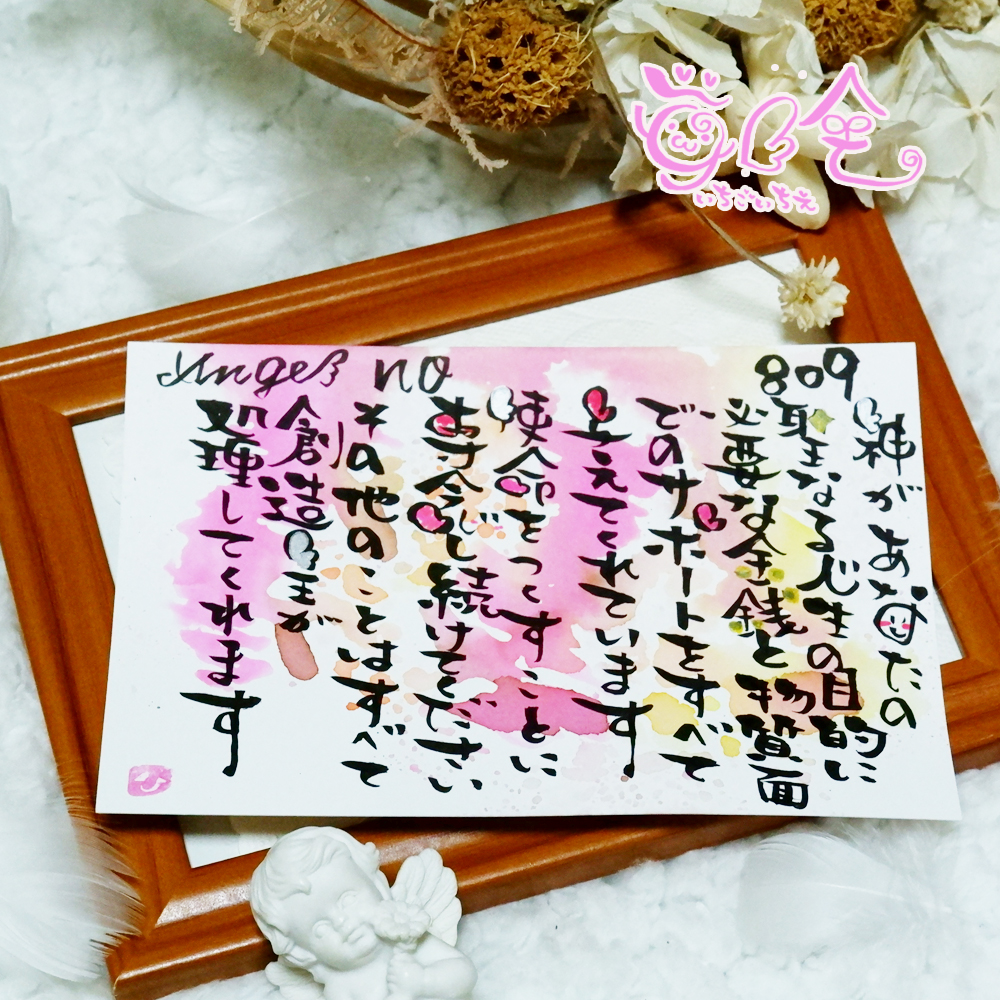 Angels no 809
神があなたの
聖なる人生の目的に
必要な金銭と物質面
でのサポートをすべて
与えてくれています
使命をつくすことに
専念し続けてください
その他のことはすべて
創造主が
処理してくれます
いちごいちえ